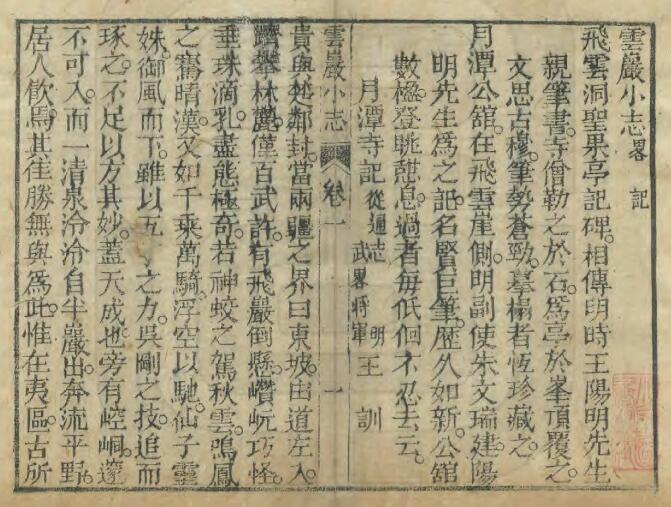 雲巖小志畧 記
飛雲洞聖果亭記碑。相傳明時王陽明先生
親筆書。寺僧勒之於石。爲亭於峯頂覆之。
文思古穆。筆勢蒼勁。摹搨者恆珍藏之。
月潭公館。在飛雲崖側。明副使朱文瑞建。陽
明先生爲之記。名賢巨筆。歷久如新。公館
數楹。登眺憇息。過者每低佪不忍去云。
月潭寺記 從通志 武畧將軍 明 王訓
雲巖小志 卷一 一
貴與 鄰封。當兩疆之界曰東坡。由道左入
躋攀林麓。僅百武許。有飛巖倒懸。巑岏巧怪。
垂珠滴乳。盡態極奇。若神蛟之駕秋雲。鳴鳳
之騫晴漢。又如千乘萬騎。浮空以馳。仙子靈
姝。御風而下。雖以五 之力。吳剛之技。追而
琢之。不足以方其妙。蓋天成也。旁有崆峒。邃
不可入。而一清泉泠泠自半巖出。奔流平野。
居人飲焉。其佳勝無與爲此。惟在夷區。古所